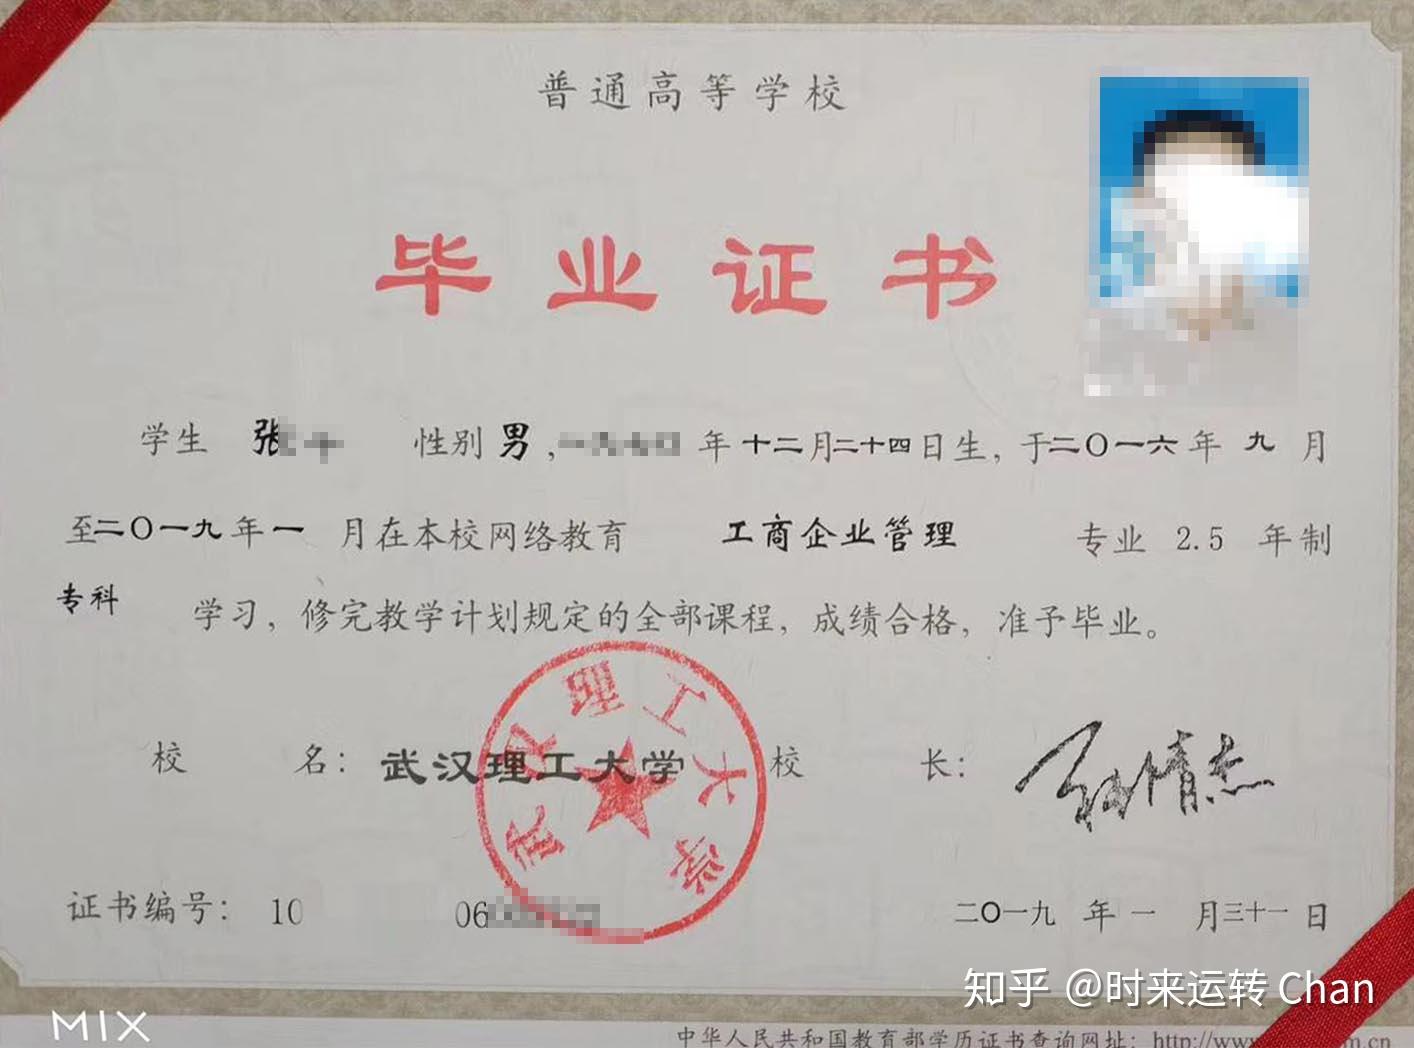 普通高等学校
毕业证书
学生 张 性别男, 年十二月二十四日生，于二〇一六年九月
至二〇一九年一月在本校网络教育 工商企业管理 专业 2.5 年制
专科 学习，修完教学计划规定的全部课程，成绩合格，准予毕业。
武汉理工大学
校 名：武汉理工大学 校 长：
证书编号：10 06
二〇一九年一月三十一日
知乎 @时来运转 Chan
MIX
中华人民共和国教育部学历证书查询网址：http://www